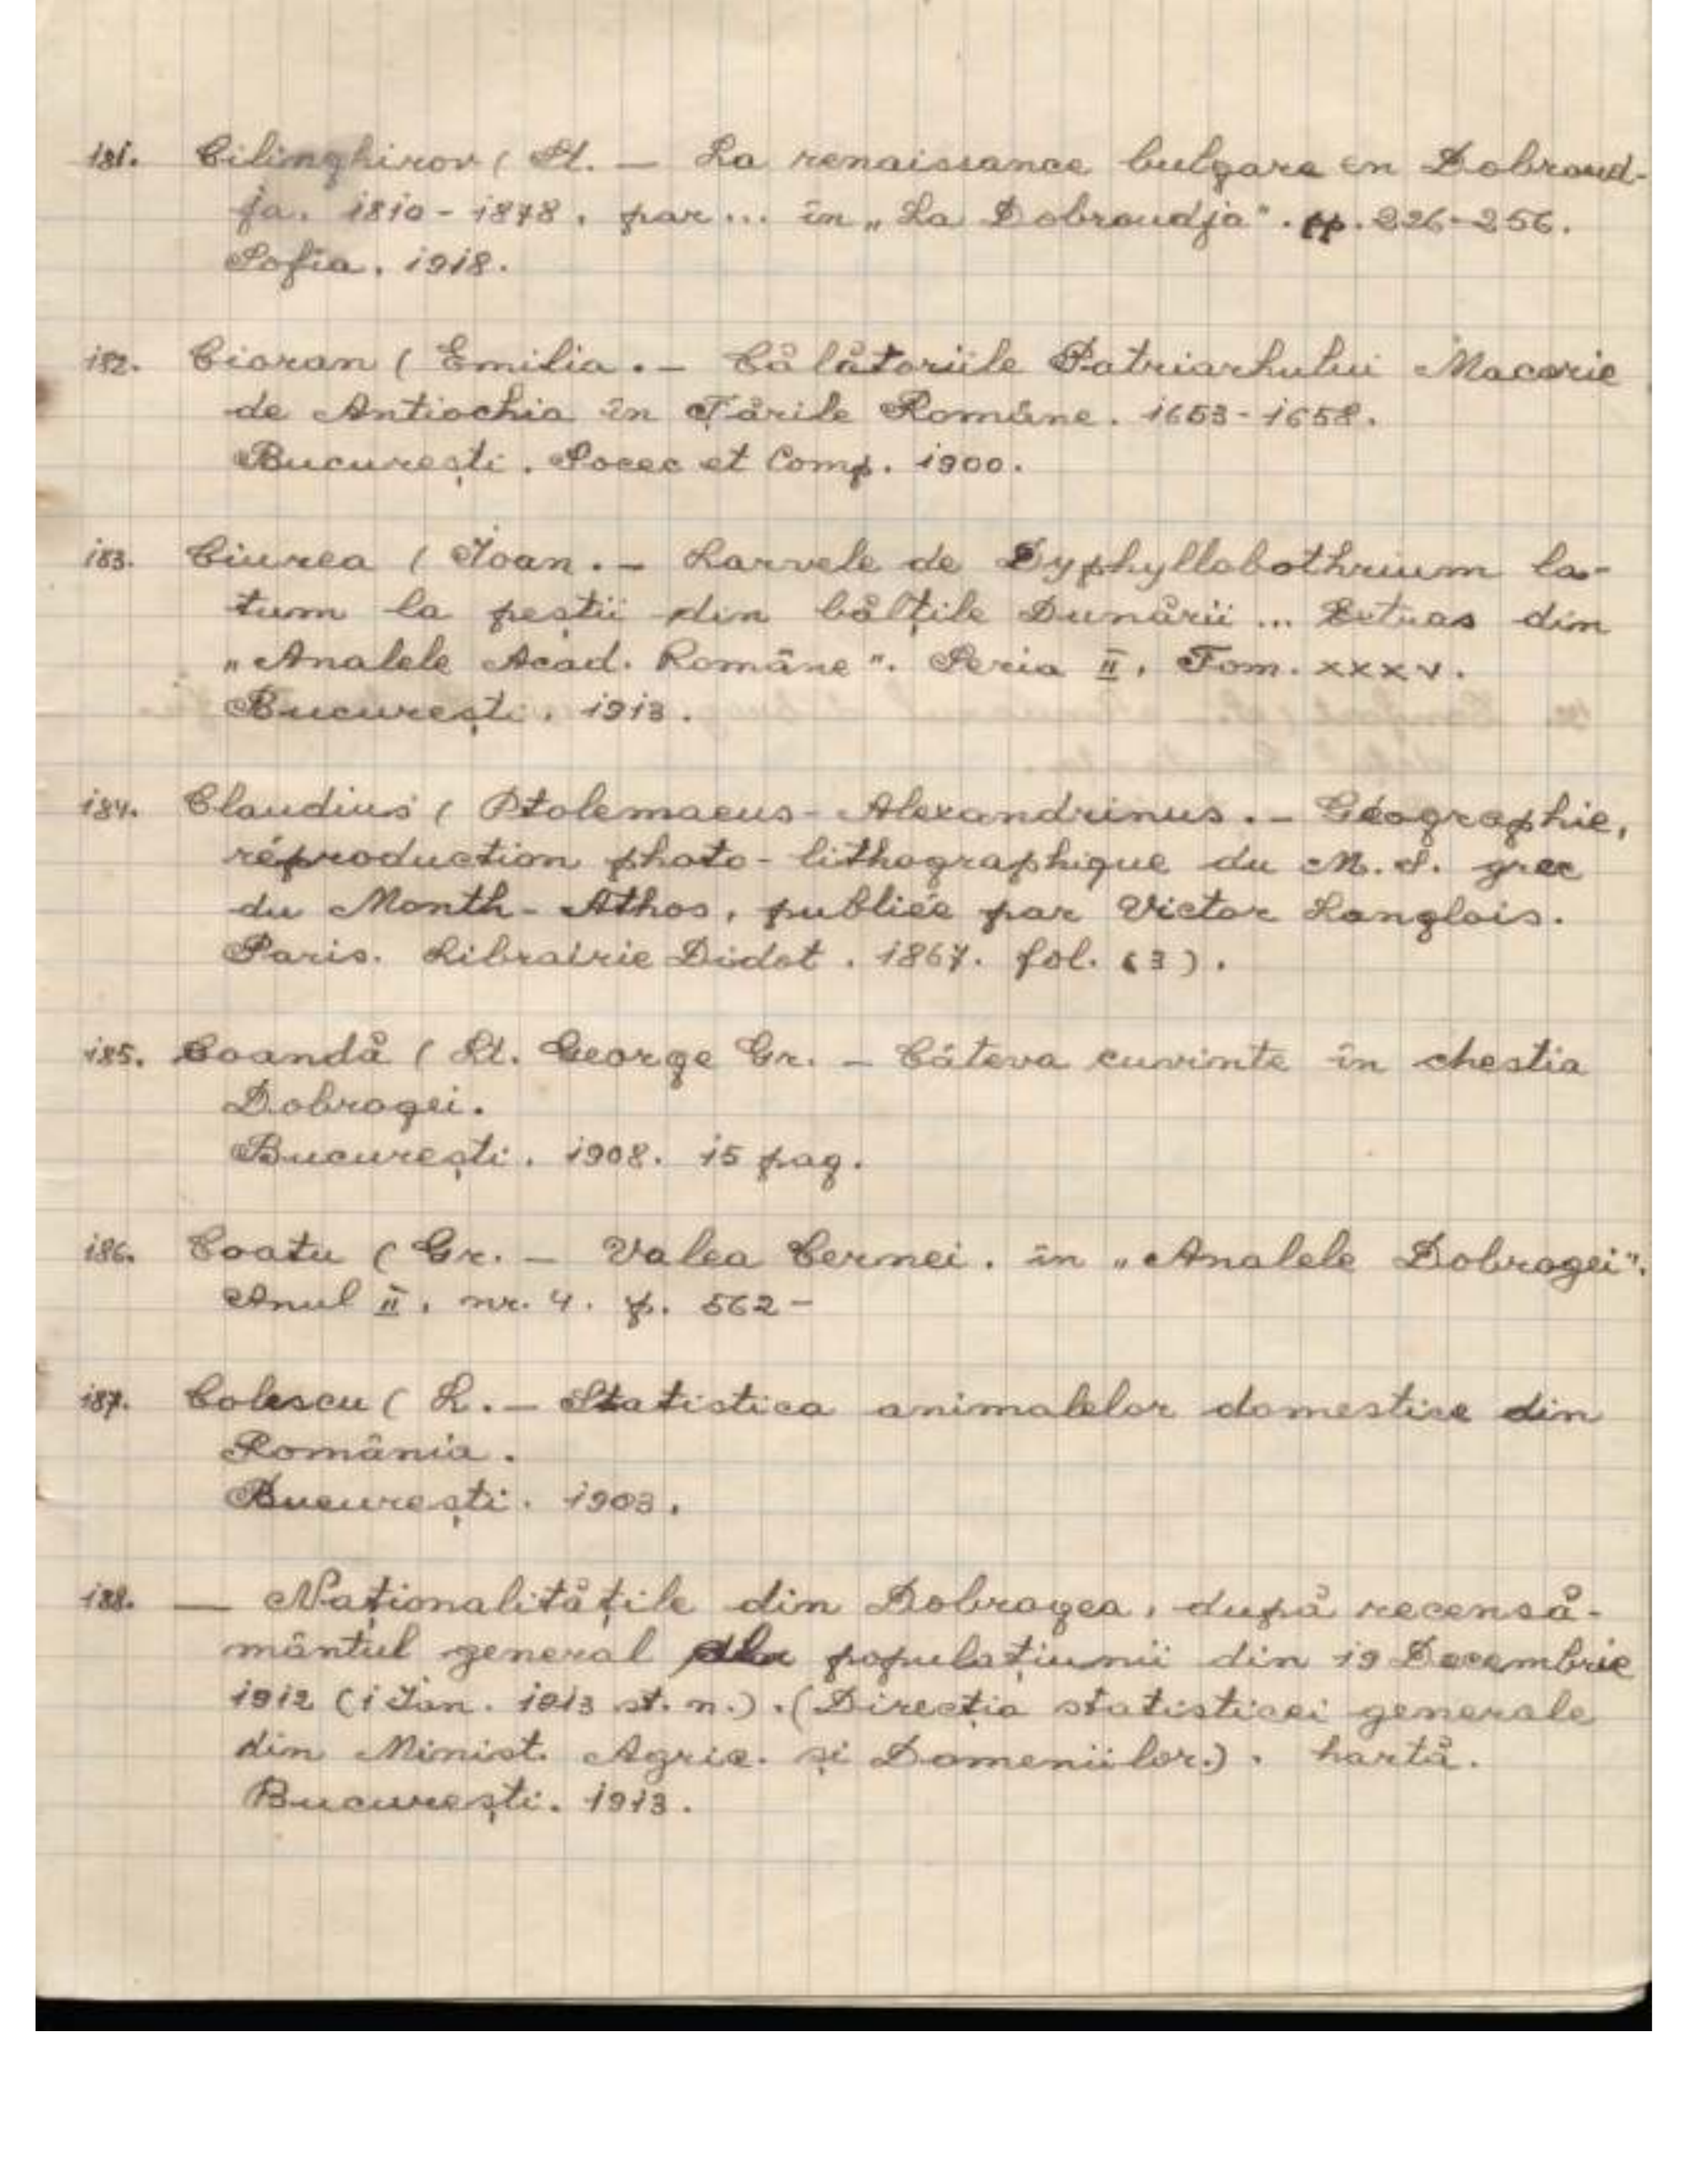 181. Cilinghirov ( St. — La renaissance bulgare en Dobroud-
ja. 1810-1878. par... în „La Dobroudja". pp. 226-256.
Sofia. 1918.
182. Cioran ( Emilia. — Călătoriile Patriarhului Macarie
de Antiochia în Țările Române. 1653-1658.
București. Socec et Comp. 1900.
183. Ciurea ( Ioan. — Larvele de Dyphyllobothrium la-
tum la peștii din bălțile Dunării ... Extras din
„Analele Acad. Române". Seria II. Tom. XXXV.
București. 1913.
184. Claudius ( Ptolemaeus - Alexandrinus. — Géographie,
réproduction photo-lithographique du M. S. grec
du Month-Athos, publiée par Victor Langlois.
Paris. Librairie Didot. 1867. fol. (3).
185. Coandă ( Lt. George Gr. — Câteva cuvinte în chestia
Dobrogei.
București. 1908. 15 pag.
186. Coatu ( Gr. — Valea Cernei. în „Analele Dobrogei".
Anul II. nr. 4. p. 562-
187. Colescu ( L. — Statistica animalelor domestice din
România.
București. 1903.
188. — Naționalitățile din Dobrogea, după recensă-
mântul general al populațiunii din 19 Decembrie
1912 (1 Ian. 1913 st. n.). (Direcția statisticei generale
din Minist. Agric. și Domeniilor.). hartă.
București. 1913.